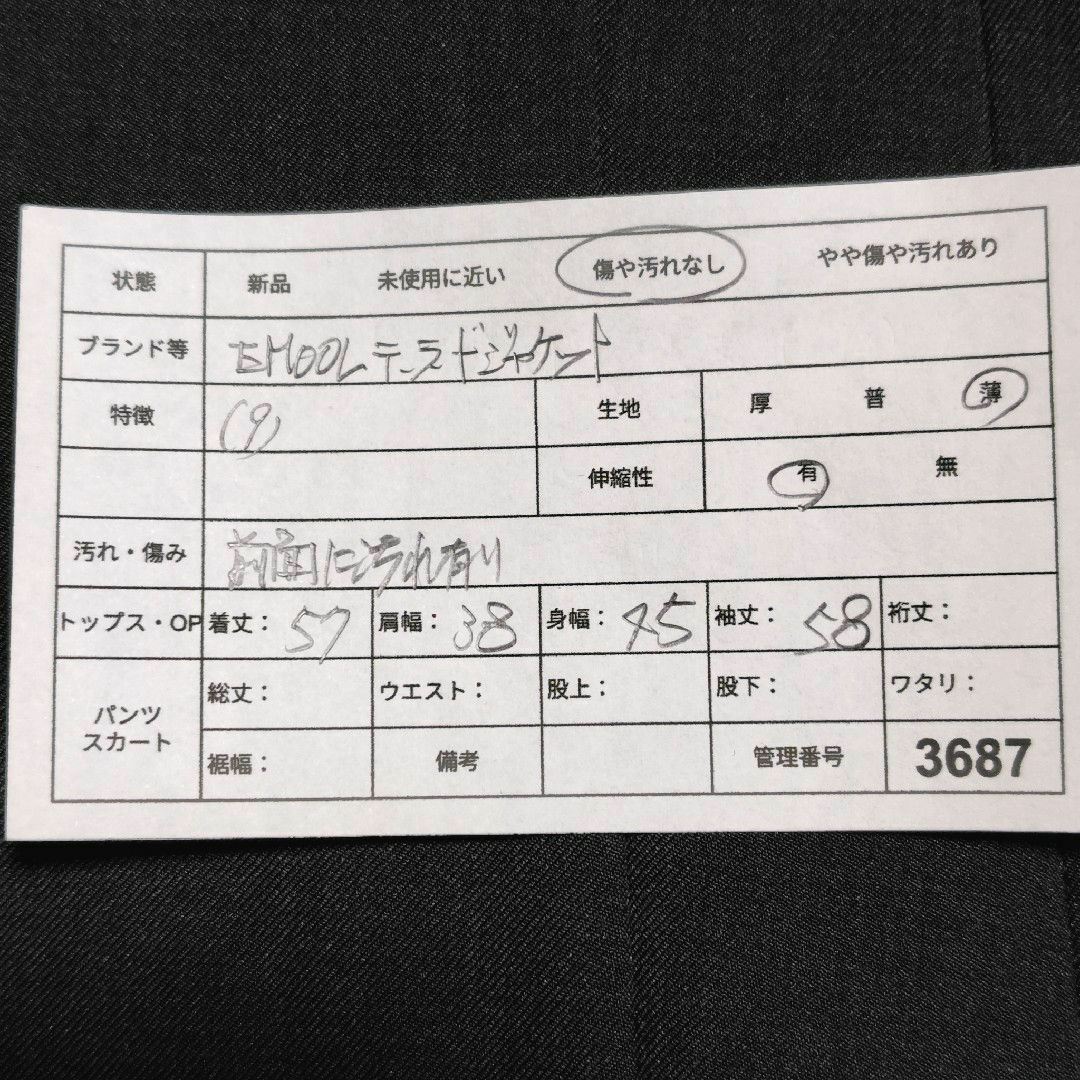 状態 新品 未使用に近い 傷や汚れなし やや傷や汚れあり
ブランド等 EMOOL テーラードジャケット
特徴 (9) 生地 厚 普 薄
伸縮性 有 無
汚れ・傷み 前面に汚れ有り
トップス・OP 着丈: 57 肩幅: 38 身幅: 45 袖丈: 58 裄丈:
パンツ スカート 総丈: ウエスト: 股上: 股下: ワタリ:
裾幅: 備考 管理番号 3687